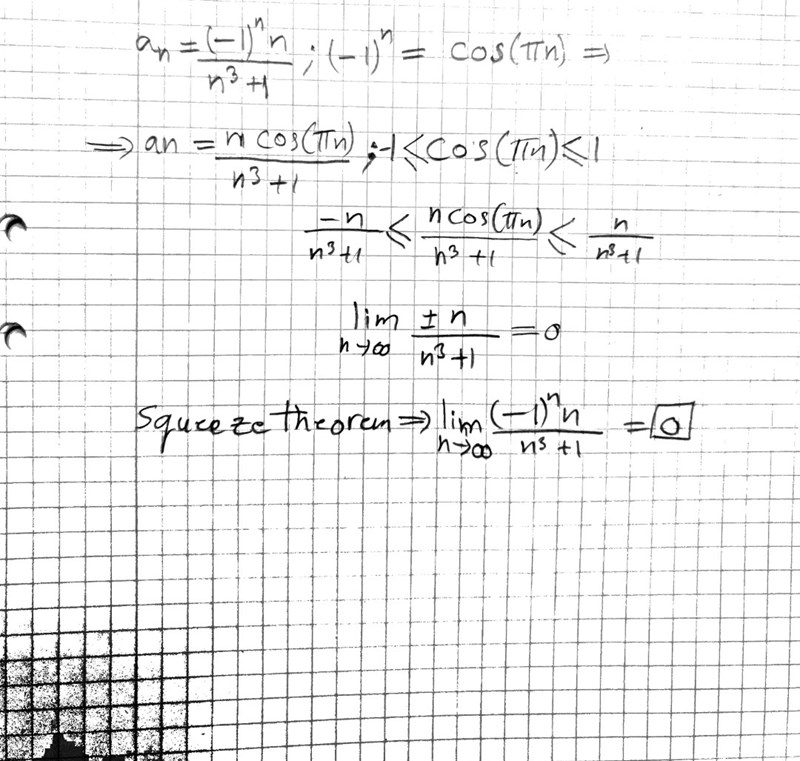 aₙ = (-1)ⁿ n / n³+1 ; (-1)ⁿ = cos(πn) ⇒
⇒ an = n cos(πn) / n³+1 ; -1 ≤ cos(πn) ≤ 1
-n / n³+1 ≤ n cos(πn) / n³+1 ≤ n / n³+1
lim n→∞ ± n / n³+1 = 0
Squeeze theorem ⇒ lim n→∞ (-1)ⁿ n / n³+1 = 0